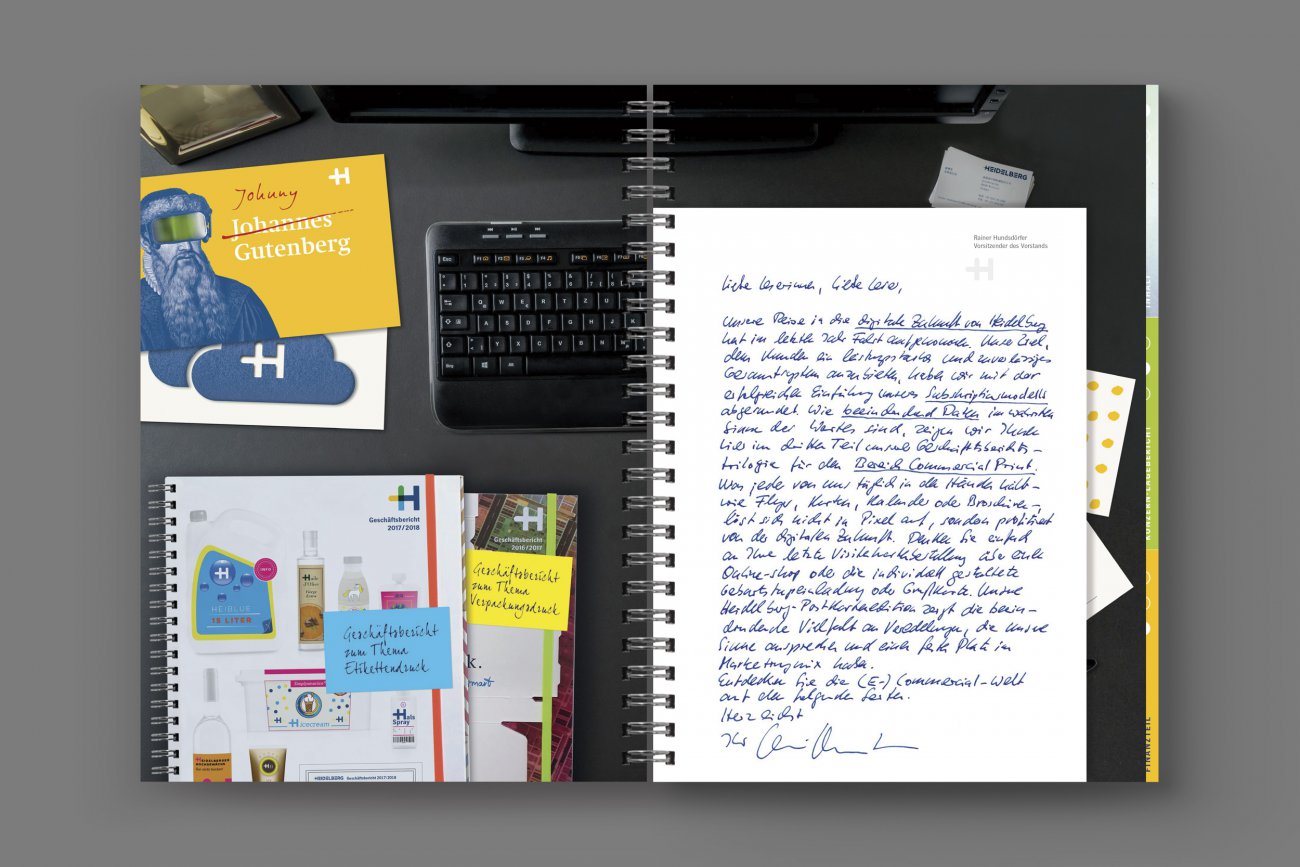 Johnny
Johannes
Gutenberg
H
H
Esc
Geschäftsbericht
2017/2018
Geschäftsbericht
2016/2017
Geschäftsbericht
zum Thema
Verpackungsdruck
Geschäftsbericht
zum Thema
Etikettendruck
INFO
H
HEIBLUE
15 LITER
icecream
Hals
Spray
HEIDELBERGER
HEIDELBERG Geschäftsbericht 2017/2018
HEIDELBERG
Rainer Hundsdörfer
Vorsitzender des Vorstands
Liebe Leserinnen, liebe Leser,
unsere Reise in die digitale Zukunft von Heidelberg
hat im letzten Jahr Fahrt aufgenommen. Unser Ziel,
dem Kunden ein leistungsstarkes und zuverlässiges
Gesamtsystem anzubieten, haben wir mit der
erfolgreichen Einführung unseres Subskriptionsmodells
abgerundet. Wie beeindruckend Daten im wahrsten
Sinne des Wortes sind, zeigen wir Ihnen
hier im dritten Teil unserer Geschäftsberichts-
trilogie für den Bereich Commercial Print.
Was jeder von uns täglich in den Händen hält –
wie Flyer, Karten, Kalender oder Broschüren –,
löst sich nicht in Pixel auf, sondern profitiert
von der digitalen Zukunft. Denken Sie einfach
an Ihre letzte Visitenkartenbestellung über einen
Online-Shop oder die individuell gestaltete
Geburtstagseinladung oder Grußkarte. Unsere
Heidelberg-Postkartenedition zeigt die beein-
druckende Vielfalt an Veredelungen, die unsere
Sinne ansprechen und einen festen Platz im
Marketingmix haben.
Entdecken Sie die (E-) Commercial-Welt
auf den folgenden Seiten.
Herzlichst
Ihr
INHALT
KONZERN-LAGEBERICHT
FINANZTEIL